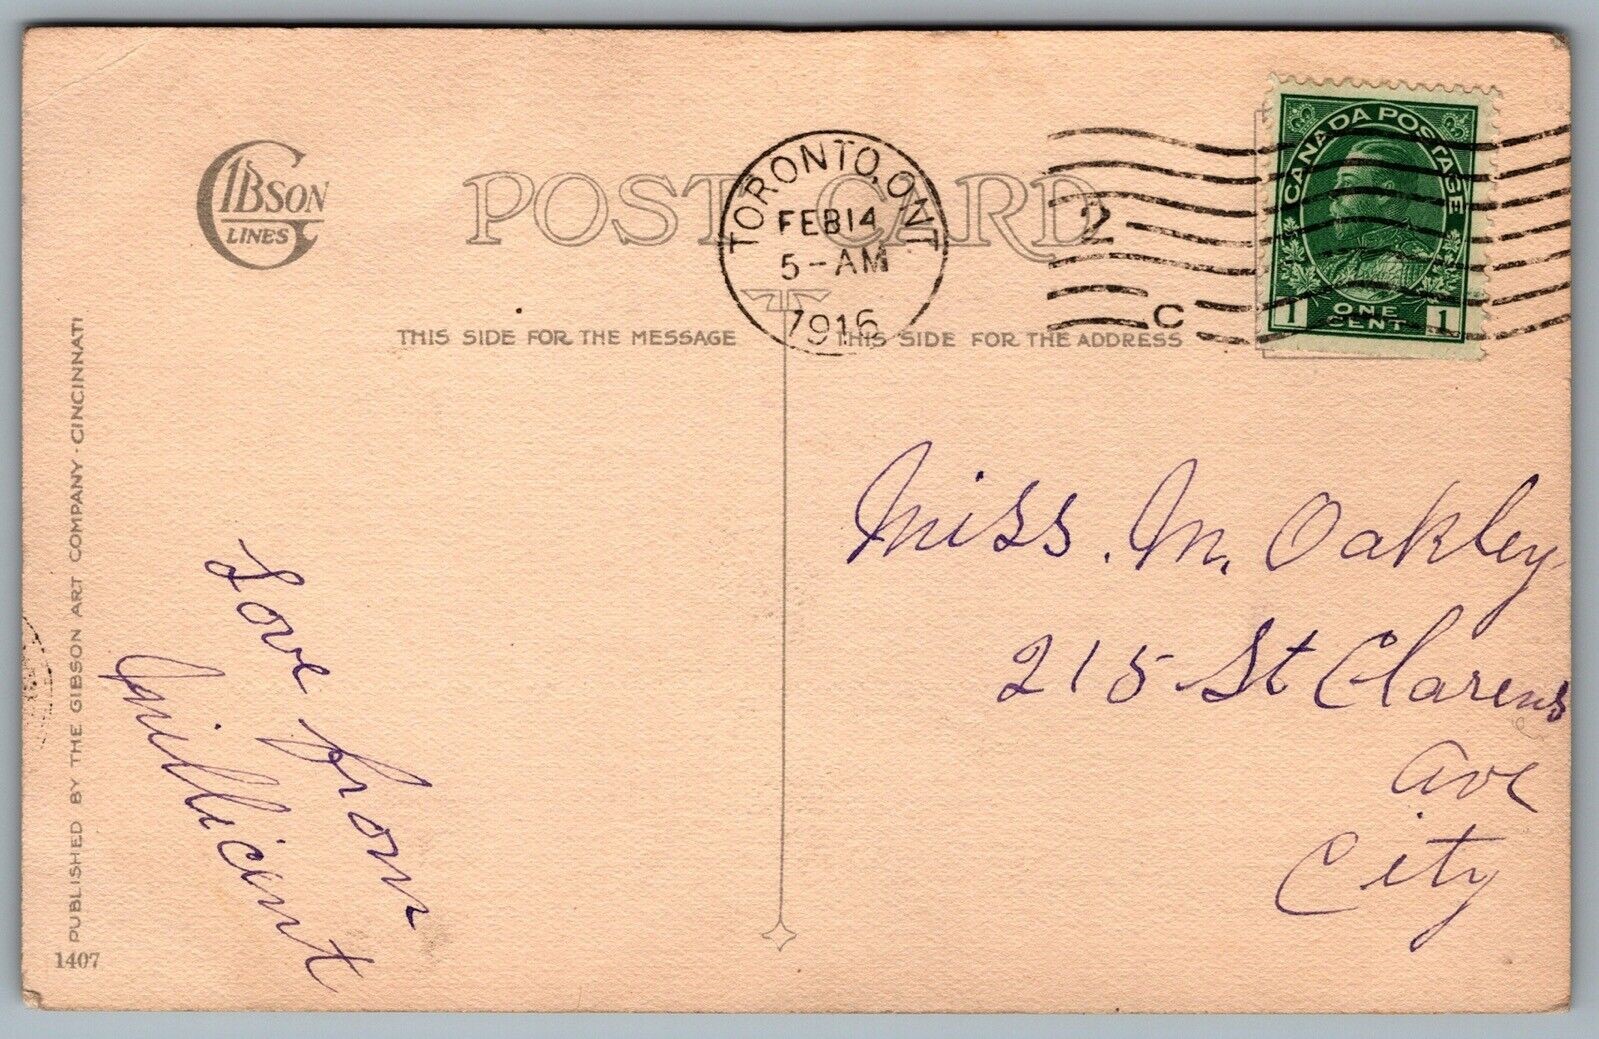 GIBSON
LINES
POST CARD
TORONTO, ONT.
FEB 14
5-AM
1916
2
C
CANADA POSTAGE
1 ONE CENT 1
THIS SIDE FOR THE MESSAGE
THIS SIDE FOR THE ADDRESS
Miss. M. Oakley
215 St Clarens
Ave
City
Love from
Millicent
PUBLISHED BY THE GIBSON ART COMPANY · CINCINNATI
1407